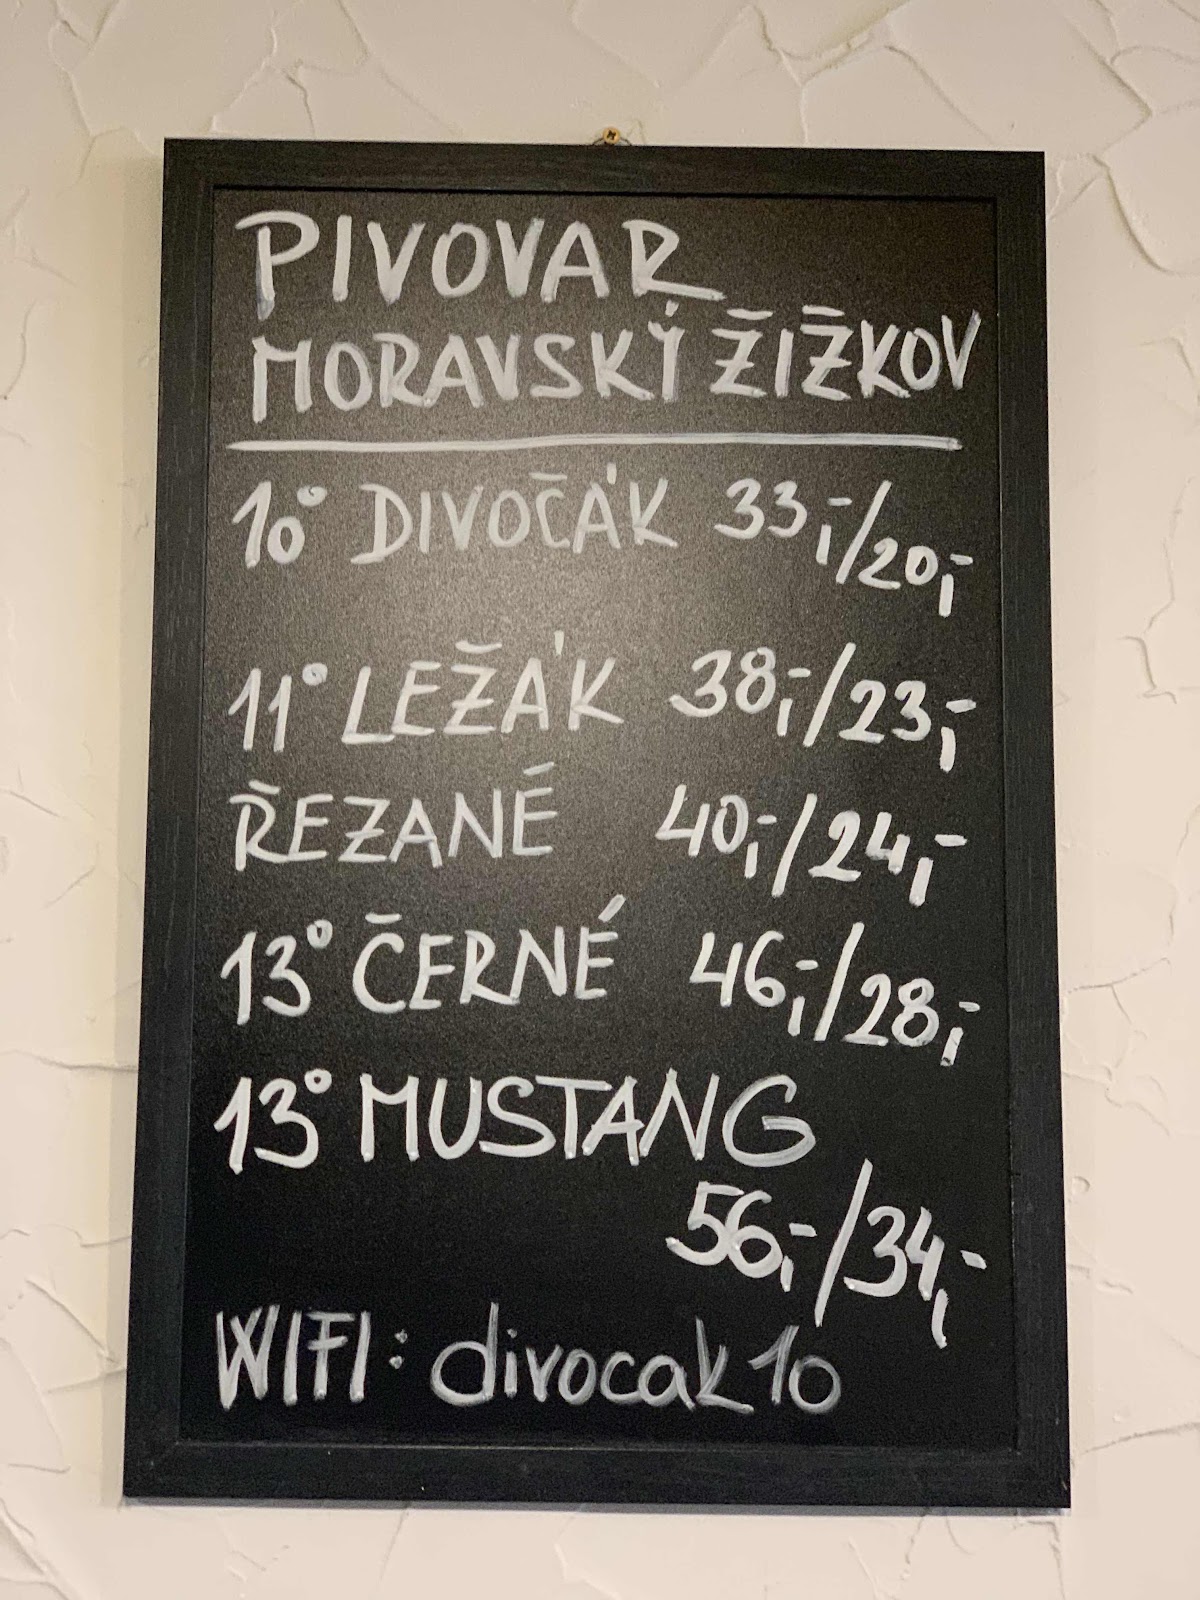 PIVOVAR
MORAVSKÝ ŽIŽKOV
10° DIVOČÁK 33,-/20,-
11° LEŽÁK 38,-/23,-
ŘEZANÉ 40,-/24,-
13° ČERNÉ 46,-/28,-
13° MUSTANG
56,-/34,-
WIFI: divocak10